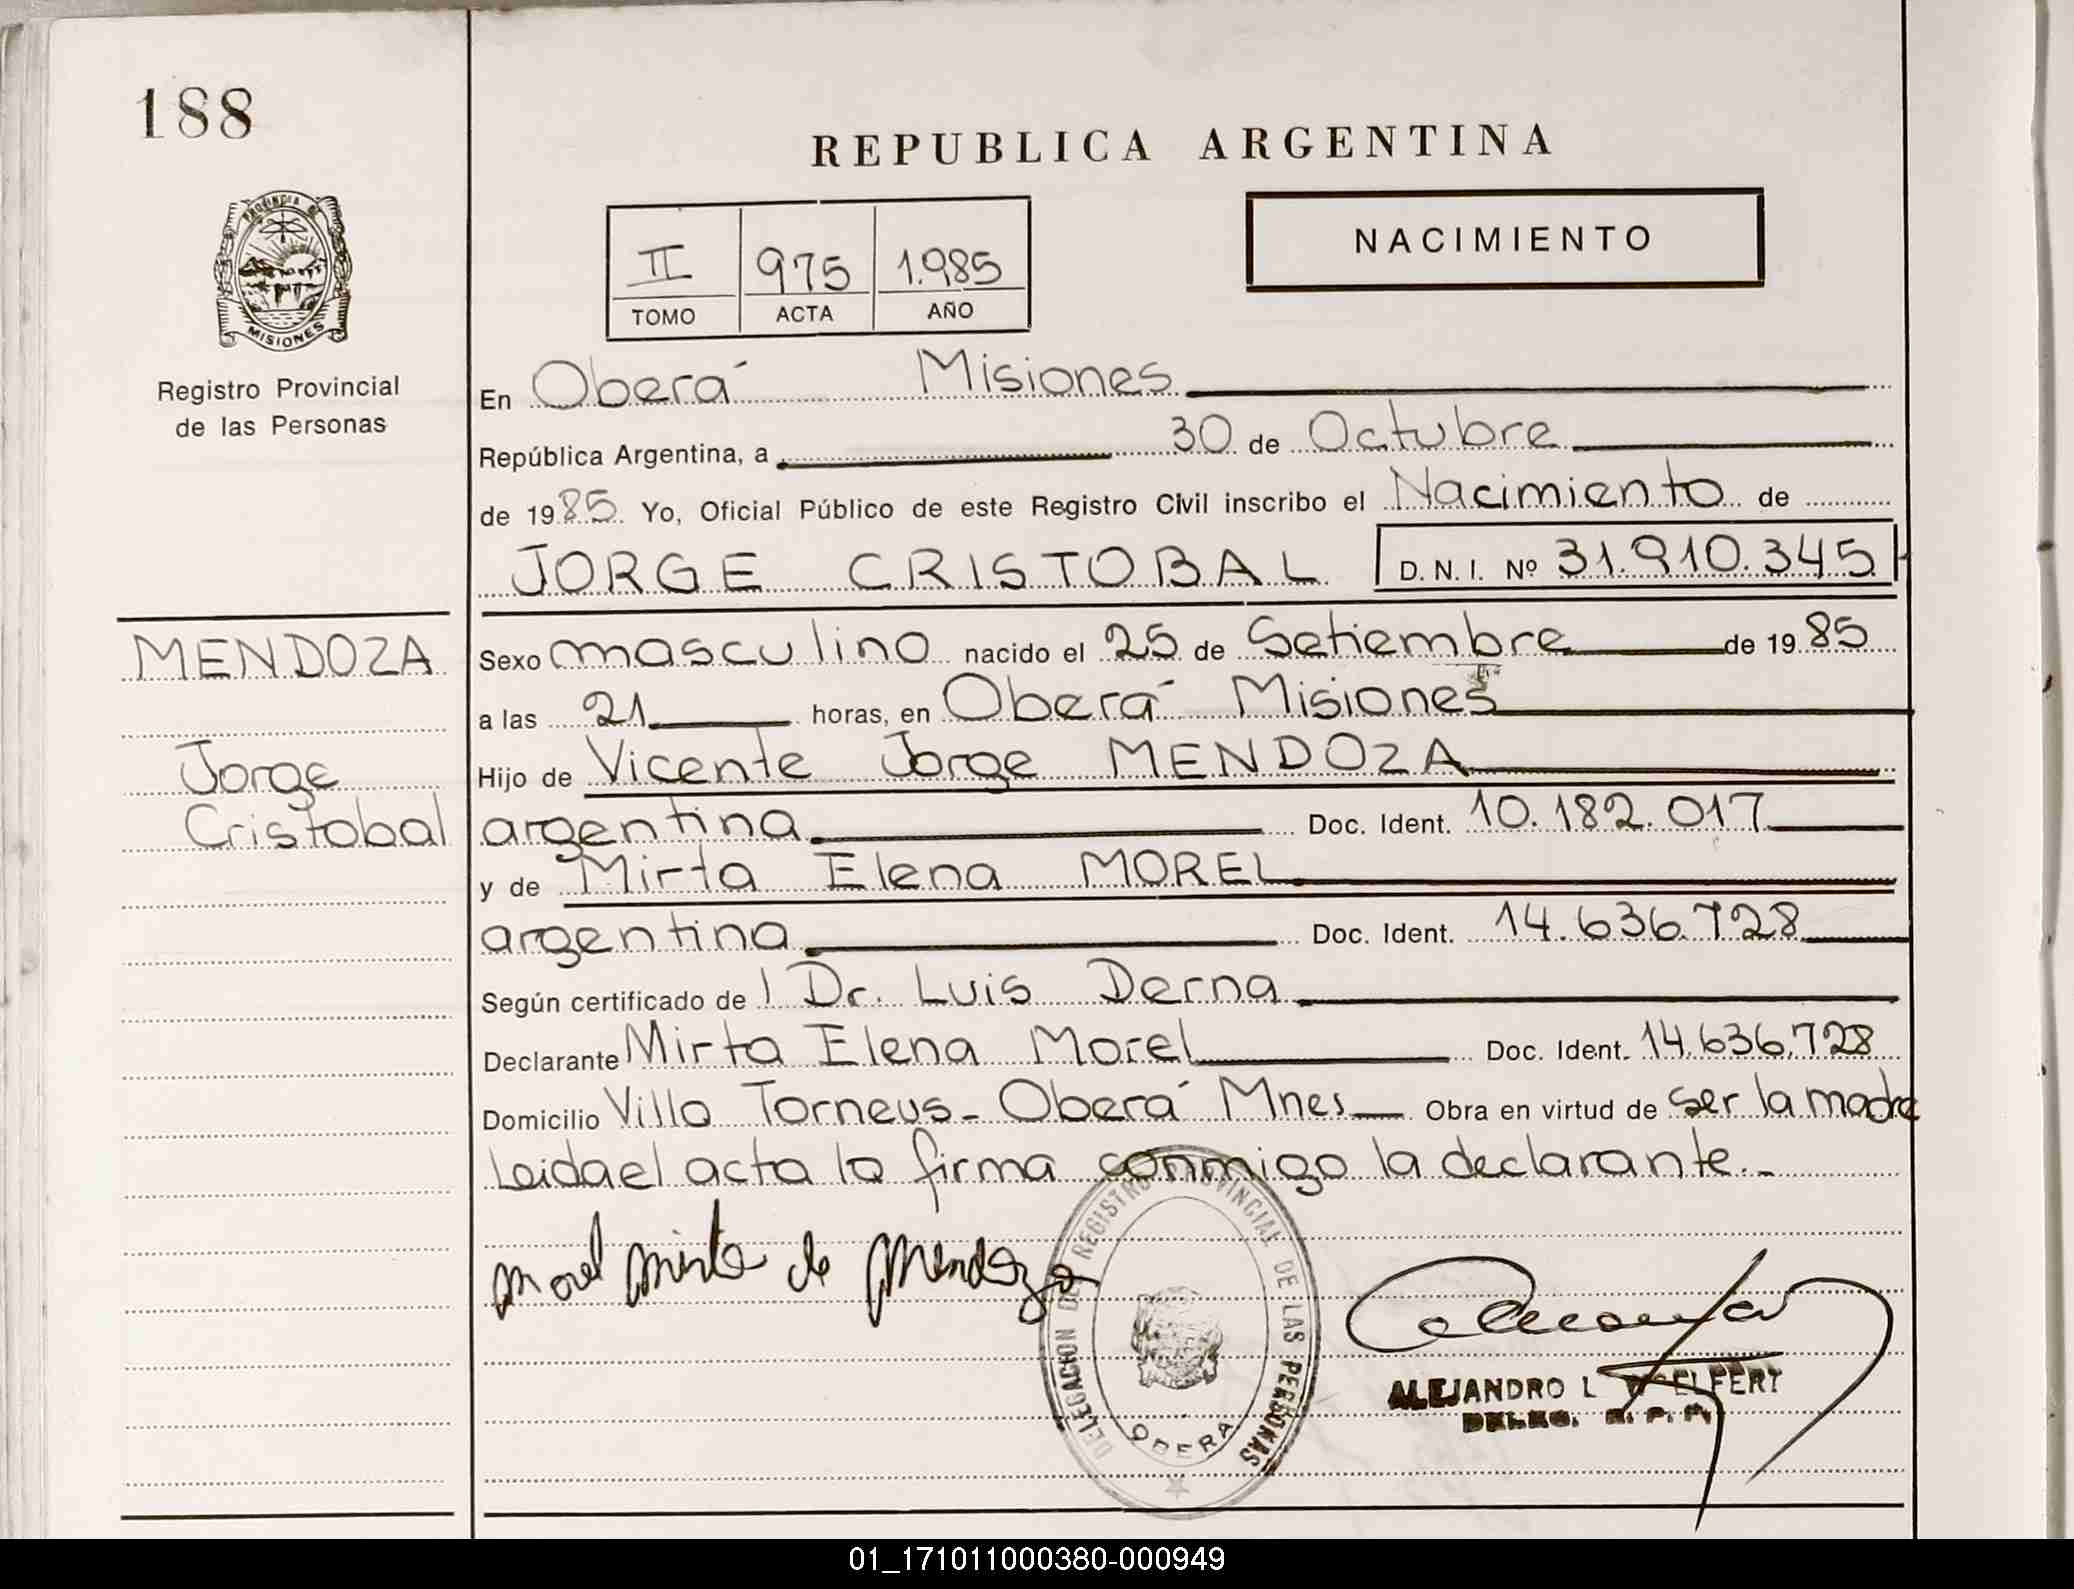 188
REPUBLICA ARGENTINA
NACIMIENTO
II 975 1.985
TOMO ACTA AÑO
PROVINCIA DE
MISIONES
Registro Provincial
de las Personas
En Oberá Misiones
República Argentina, a 30 de Octubre
de 1985 Yo, Oficial Público de este Registro Civil inscribo el Nacimiento de
JORGE CRISTOBAL D.N.I. Nº 31.910.345
MENDOZA
Jorge
Cristobal
Sexo masculino nacido el 25 de Setiembre de 1985
a las 21 horas, en Oberá Misiones
Hijo de Vicente Jorge MENDOZA
argentina Doc. Ident. 10.182.017
y de Mirta Elena MOREL
argentina Doc. Ident. 14.636.728
Según certificado de l Dr. Luis Derna
Declarante Mirta Elena Morel Doc. Ident. 14.636.728
Domicilio Villa Torneus - Oberá Mnes Obra en virtud de ser la madre
Leida el acta la firma conmigo la declarante.-
Morel Mirta de Mendoza
DELEGACION DEL REGISTRO PROVINCIAL DE LAS PERSONAS
OBERA
ALEJANDRO L
DELEG. R. P. P.
01_171011000380-000949